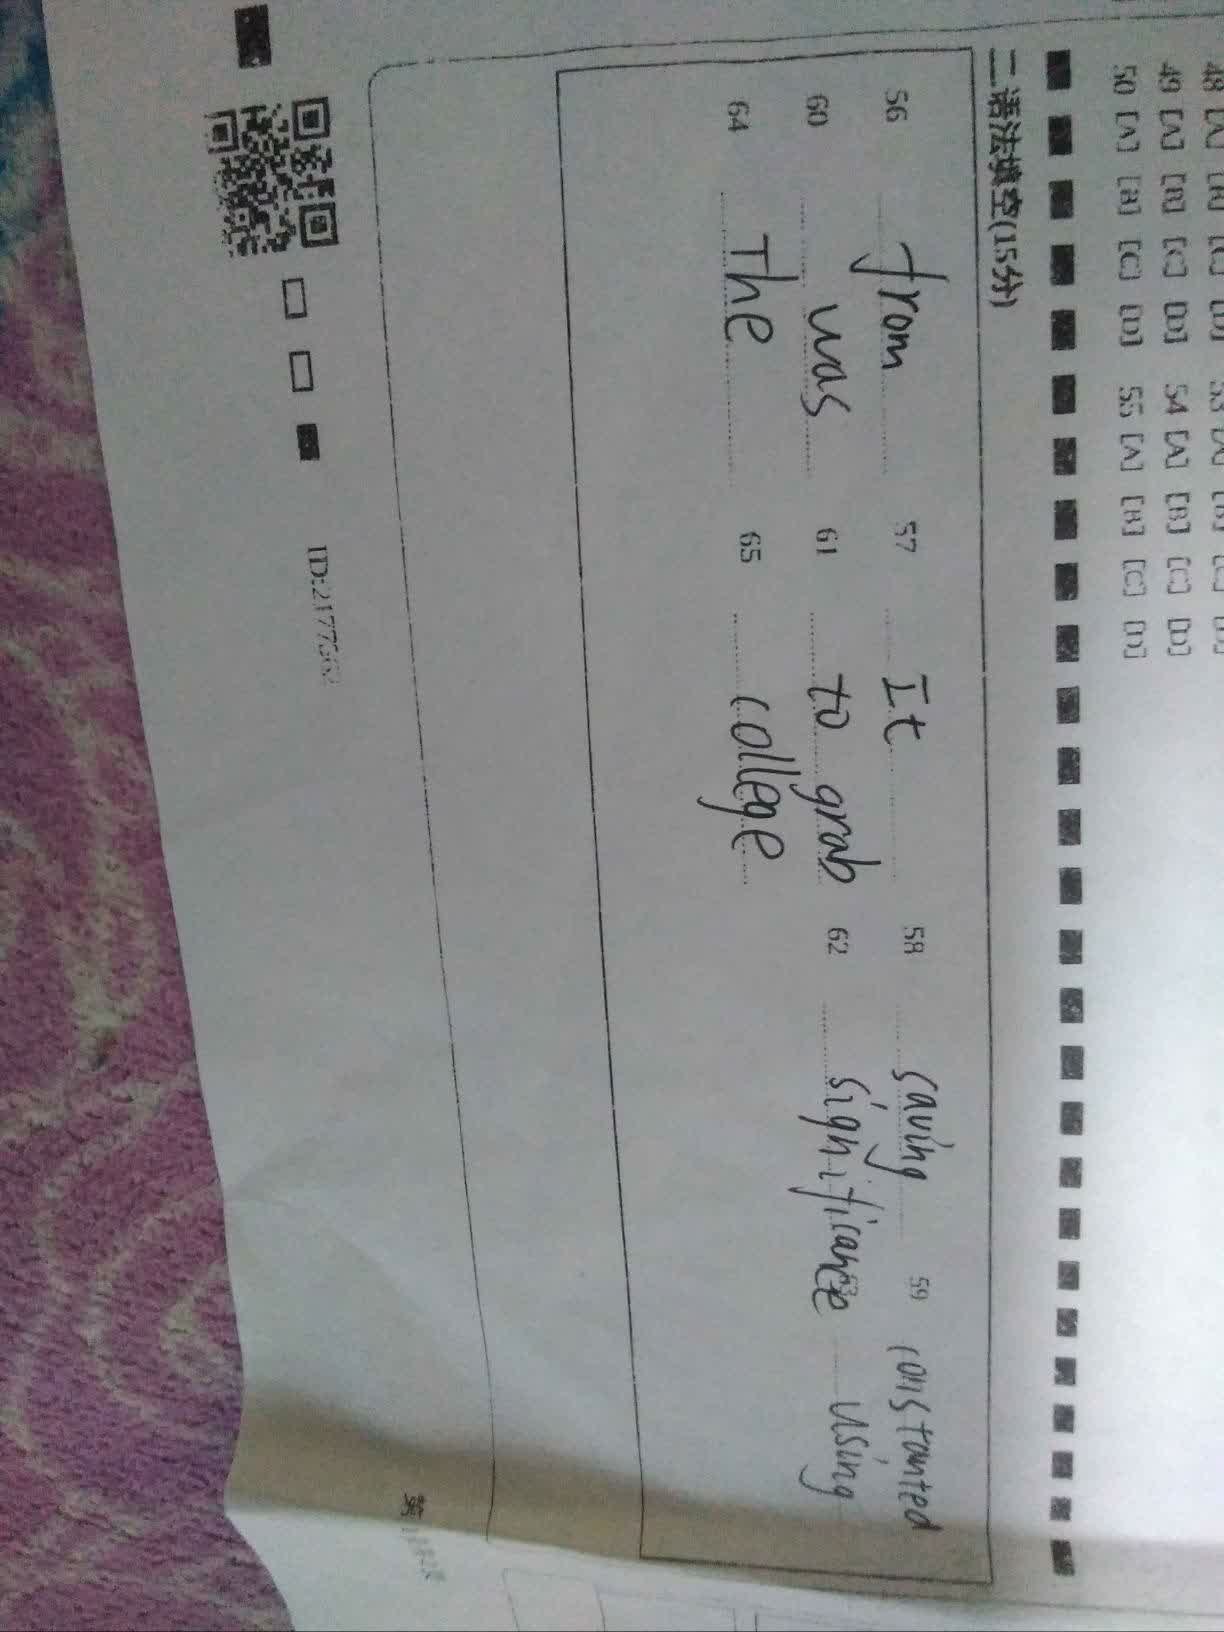 48 [A] [B] [C] [D] 53 [A] [B] [C] [D]
49 [A] [B] [C] [D] 54 [A] [B] [C] [D]
50 [A] [B] [C] [D] 55 [A] [B] [C] [D]
二 语法填空(15分)
56 from 57 It 58 saving 59 constanted
60 was 61 to grab 62 significance 63 using
64 The 65 college
ID:2177
第